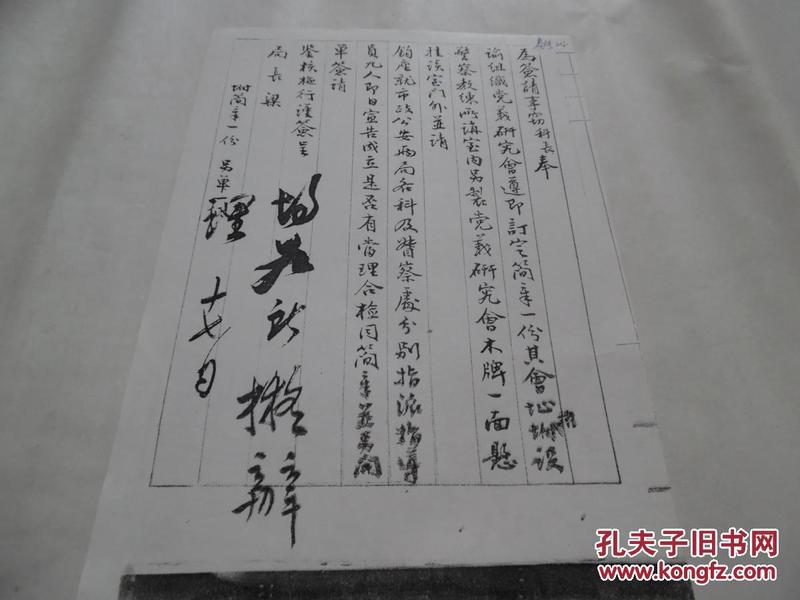 為簽請事窃科長奉
諭組織党義研究會遵即訂定簡章一份其會址擬附設
警察教練所講室內另製党義研究會木牌一面懸
挂該室門外並請
鈞座就市政公安两局各科及督察處分別指派指導
員九人即日宣告成立是否有當理合檢同簡章並另開
單簽請
鉴核施行謹簽呈
局長梁
附簡章一份 另單
擬辦
十七日
孔夫子旧书网
www.kongfz.com